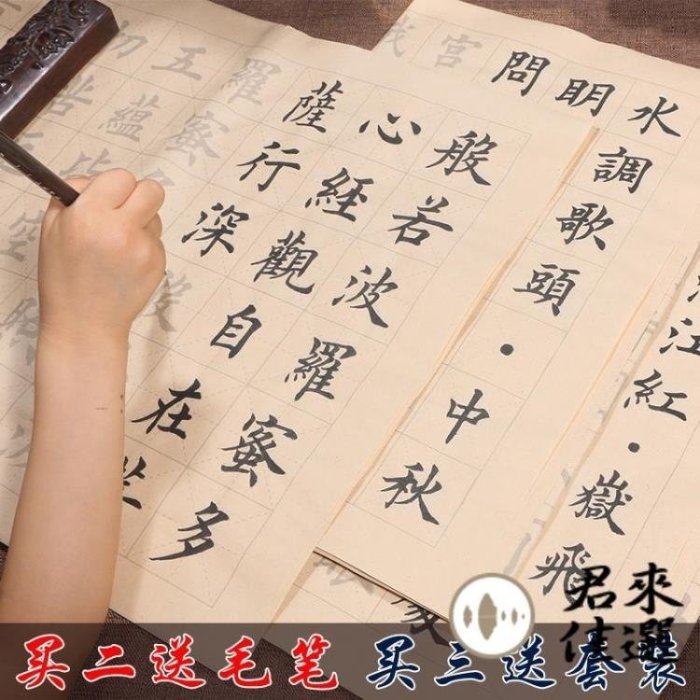 水調歌頭·中秋
明
問
宮
江紅·嶽飛
般若波羅蜜多
心經觀自在
薩行深
羅蜜
五蘊
切
空
照
君來佳選
买二送毛笔 买三送套装